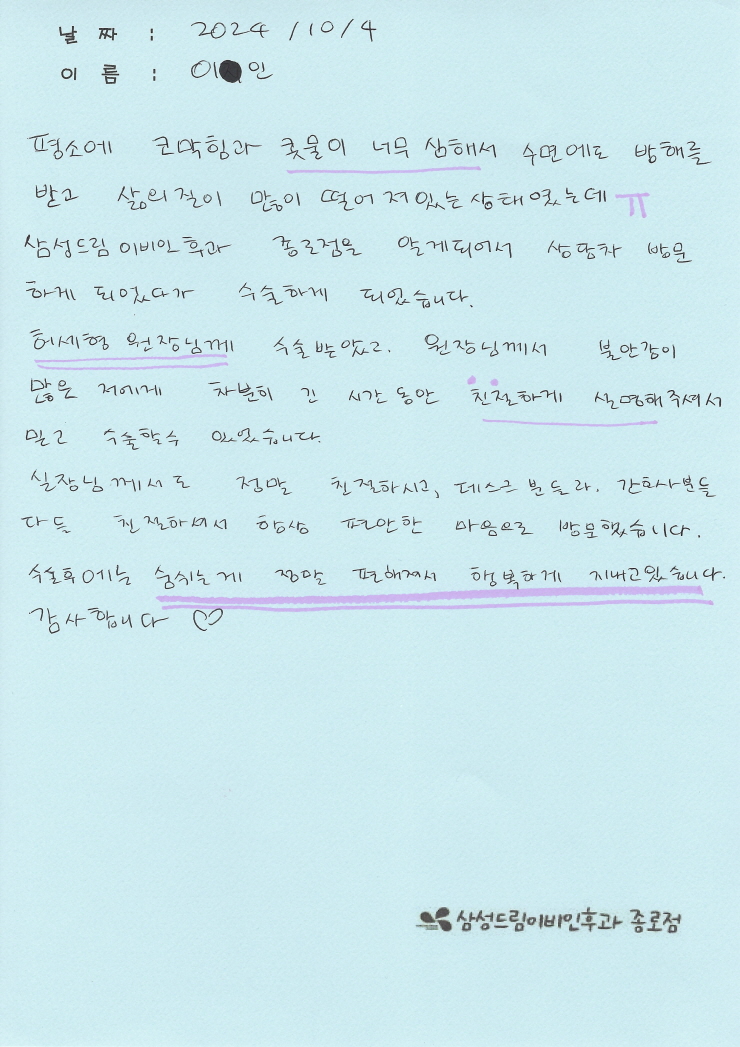 날 짜 : 2024 / 10 / 4
이 름 : 이 인
평소에 코막힘과 콧물이 너무 심해서 수면에도 방해를
받고 삶의질이 많이 떨어져있는 상태였는데 ㅠ
삼성드림이비인후과 종로점을 알게되어서 상담차 방문
하게 되었다가 수술하게 되었습니다.
허세형 원장님께 수술받았고. 원장님께서 불안감이
많은 저에게 차분히 긴 시간동안 친절하게 설명해주셔서
믿고 수술할수 있었습니다.
실장님께서도 정말 친절하시고, 데스크분들라. 간호사분들
다들 친절하셔서 항상 편안한 마음으로 방문했습니다.
수술후에는 숨쉬는게 정말 편해져서 행복하게 지내고있습니다.
감사합니다 ♡
삼성드림이비인후과 종로점